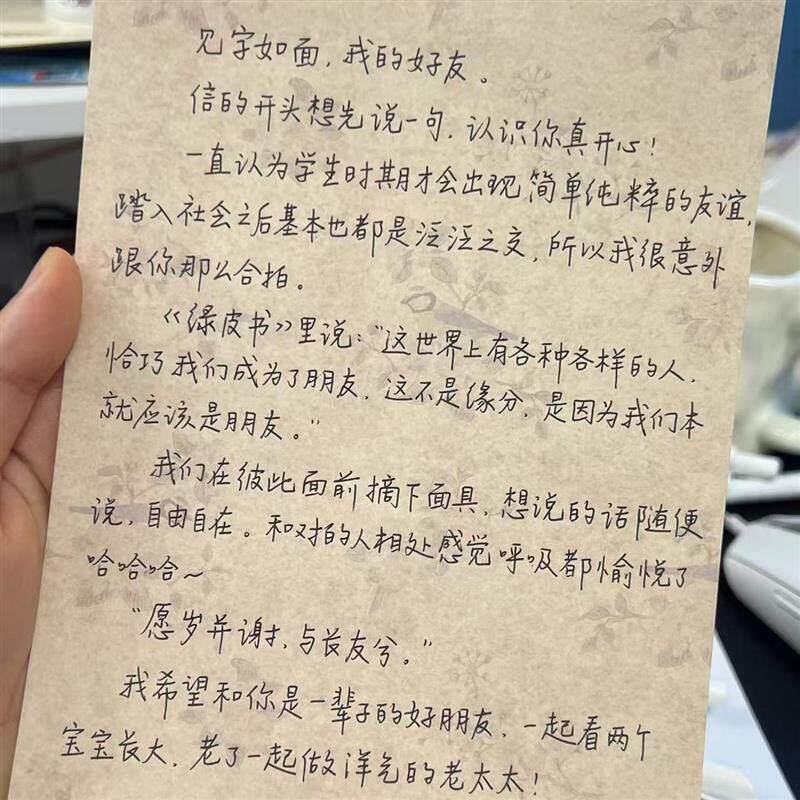 见字如面，我的好友。
信的开头想先说一句，认识你真开心！
一直认为学生时期才会出现简单纯粹的友谊，
踏入社会之后基本也都是泛泛之交，所以我很意外
跟你那么合拍。
《绿皮书》里说："这世界上有各种各样的人，
恰巧我们成为了朋友，这不是缘分，是因为我们本
就应该是朋友。"
我们在彼此面前摘下面具，想说的话随便
说，自由自在。和对的人相处感觉呼吸都愉悦了
哈哈哈~
"愿岁并谢，与长友兮。"
我希望和你是一辈子的好朋友，一起看两个
宝宝长大，老了一起做洋气的老太太！